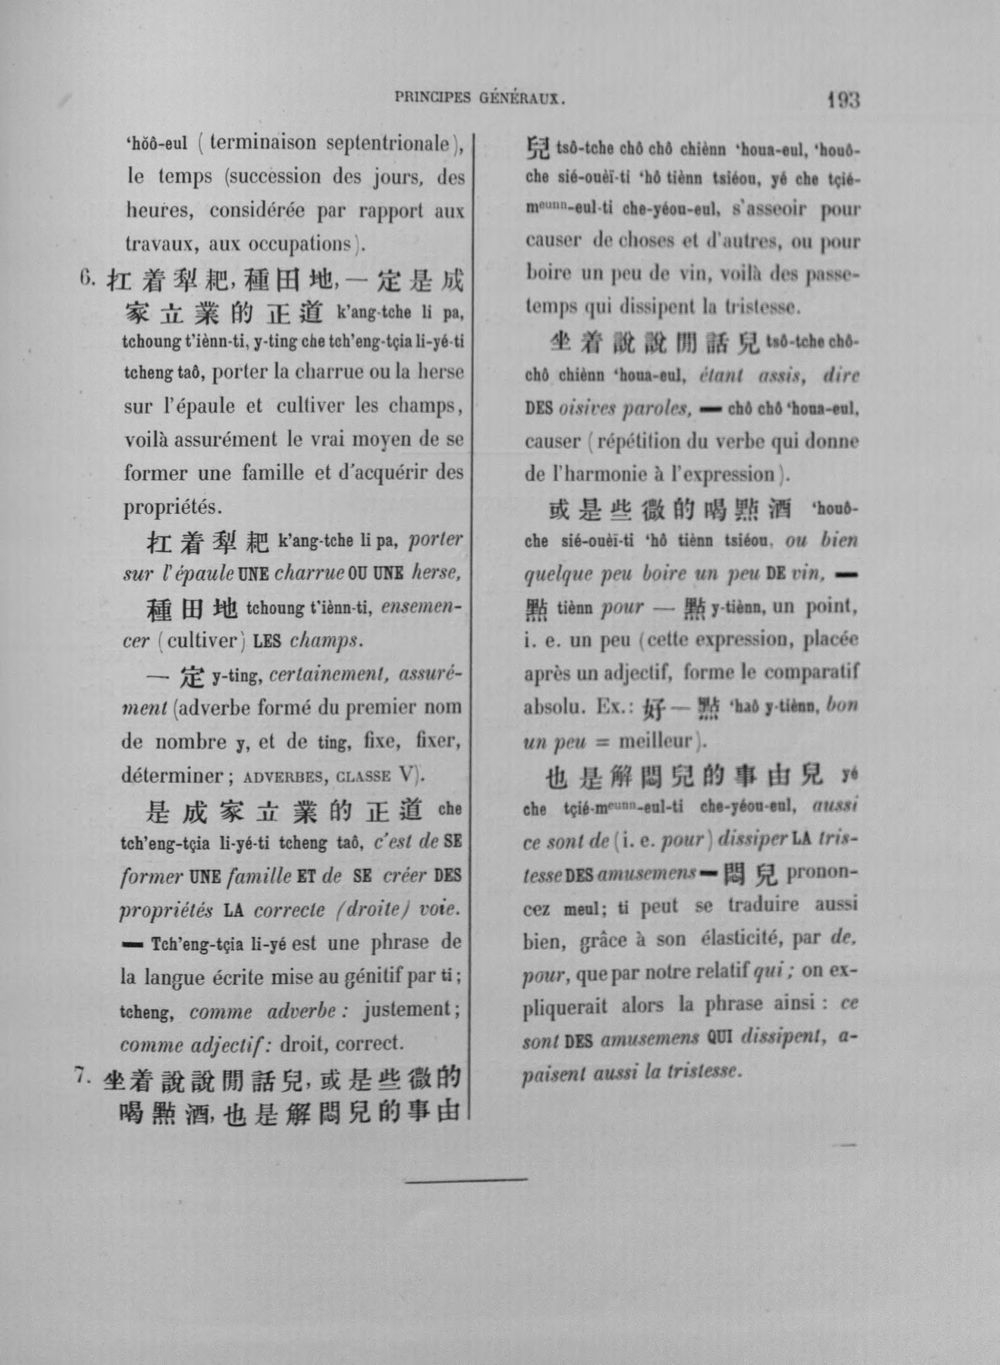 PRINCIPES GÉNÉRAUX.
193
‘hŏô-eul ( terminaison septentrionale ),
le temps (succession des jours, des
heures, considérée par rapport aux
travaux, aux occupations ).
6. 扛着犁耙, 種田地, 一定是成
家立業的正道 k’ang-tche li pa,
tchoung t’iènn-ti, y-ting che tch’eng-tçia li-yé-ti
tcheng taô, porter la charrue ou la herse
sur l’épaule et cultiver les champs,
voilà assurément le vrai moyen de se
former une famille et d’acquérir des
propriétés.
扛着犁耙 k’ang-tche li pa, porter
sur l’épaule UNE charrue OU UNE herse,
種田地 tchoung t’iènn-ti, ensemen-
cer ( cultiver ) LES champs.
一定 y-ting, certainement, assuré-
ment (adverbe formé du premier nom
de nombre y, et de ting, fixe, fixer,
déterminer ; ADVERBES, CLASSE V).
是成家立業的正道 che
tch’eng-tçia li-yé-ti tcheng taô, c’est de SE
former UNE famille ET de SE créer DES
propriétés LA correcte (droite) voie.
— Tch’eng-tçia li-yé est une phrase de
la langue écrite mise au génitif par ti ;
tcheng, comme adverbe : justement ;
comme adjectif : droit, correct.
7. 坐着說說閒話兒, 或是些微的
喝點酒, 也是解悶兒的事由
兒 tsô-tche chô chô chiènn ‘houa-eul, ‘houô-
che sié-ouèï-ti ‘hô tiènn tsiéou, yé che tçié-
meunn-eul-ti che-yéou-eul, s’asseoir pour
causer de choses et d’autres, ou pour
boire un peu de vin, voilà des passe-
temps qui dissipent la tristesse.
坐着說說閒話兒 tsô-tche chô-
chô chiènn ‘houa-eul, étant assis, dire
DES oisives paroles, — chô chô ‘houa-eul,
causer ( répétition du verbe qui donne
de l’harmonie à l’expression ).
或是些微的喝點酒 ‘houô-
che sié-ouèï-ti ‘hô tiènn tsiéou, ou bien
quelque peu boire un peu DE vin, —
點 tiènn pour — 點 y-tiènn, un point,
i. e. un peu (cette expression, placée
après un adjectif, forme le comparatif
absolu. Ex. : 好一點 ‘haô y-tiènn, bon
un peu = meilleur ).
也是解悶兒的事由兒 yé
che tçié-meunn-eul-ti che-yéou-eul, aussi
ce sont de ( i. e. pour ) dissiper LA tris-
tesse DES amusemens — 悶兒 pronon-
cez meul ; ti peut se traduire aussi
bien, grâce à son élasticité, par de,
pour, que par notre relatif qui ; on ex-
pliquerait alors la phrase ainsi : ce
sont DES amusemens QUI dissipent, a-
paisent aussi la tristesse.